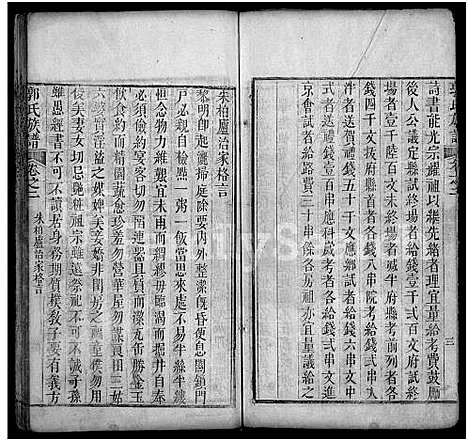 詩書能光宗耀祖以繼先緒者理宜量給考費鼓厲
後人公議定縣試終場者給錢壹千弍百文府終
場者壹千陸百文未終場者減半府縣考前列者給
錢四千文取入佾生者各錢八串院考給錢一串文
者給錢五十千文應鄉試者給錢六串文中
式者送費四十串應科歲考者各給錢二串文入
京會試者給路費三十串餘各房祖亦宜量議給之
三
朱柏廬治家格言
黎明即起灑掃庭除要內外整潔旣昏便息關鎖門
戶必親自檢點一粥一飯當思來處不易半絲半縷
恒念物力維艱宜未雨而綢繆毋臨渴而掘井自奉
必須儉約宴客切勿留連器具質而潔瓦缶勝金玉
飲食約而精園蔬愈珍羞勿營華屋勿謀良田三姑
六婆實淫盜之媒婢美妾嬌非閨房之福童僕勿用
俊美妻女切忌艷粧祖宗雖遠祭祀不可不誠子孫
雖愚經書不可不讀居身務期質樸敎子
郭氏族譜
卷之二
朱柏廬治家格言